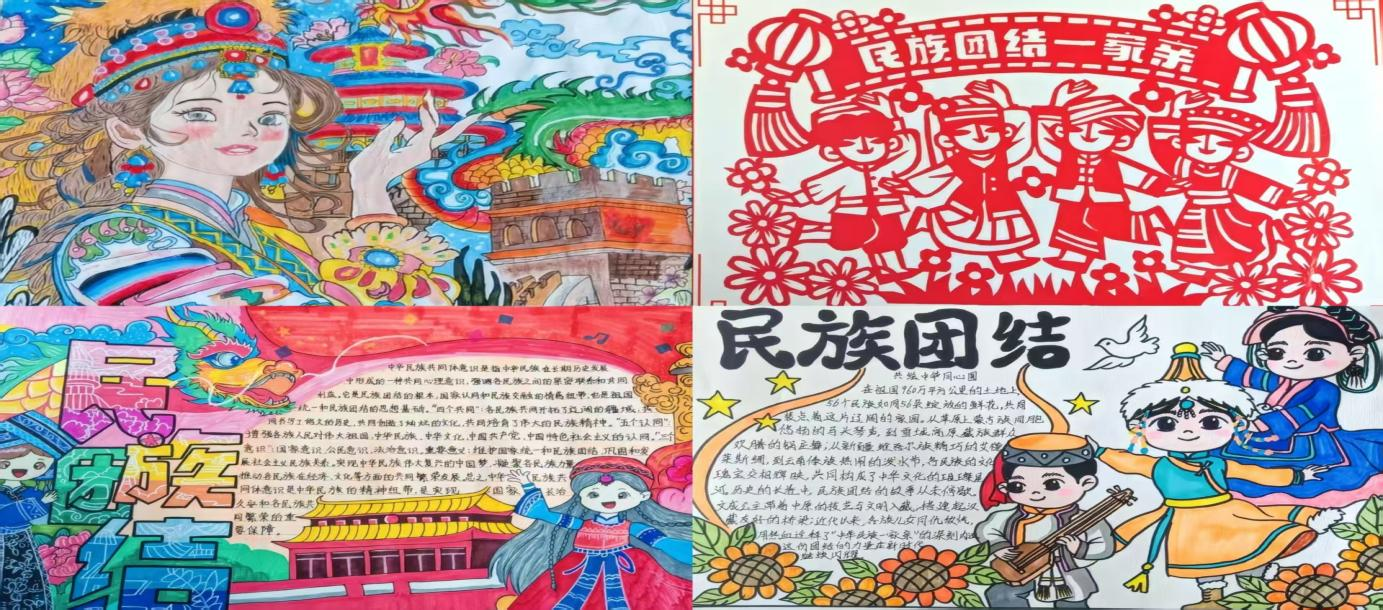 民族团结一家亲
民族团结
中华民族共同体意识是指中华民族在长期历史发展
中形成的一种共同心理意识,强调各民族之间的紧密联系和共同
利益。它是民族团结的根本,国家认同和民族交融的情感纽带,也是祖国
统一和民族团结的思想基础。"四个共同":各民族共同开拓了辽阔的疆域,共
同书写了悠久的历史,共同创造了灿烂的文化,共同培育了伟大的民族精神。"五个认同":
增强各族人民对伟大祖国、中华民族、中华文化、中国共产党、中国特色社会主义的认同。"三个
意识":国家意识、公民意识、法治意识。重要意义:维护国家统一和民族团结,巩固和发
展社会主义民族关系,实现中华民族伟大复兴的中国梦,凝聚各民族力量
推动各民族在经济、文化等方面的共同繁荣发展。总之,中华民族共
同体意识是中华民族的精神纽带,是实现 国家 长治
久安和各民族共
同繁荣的重
要保障。
民族团结
共绘中华同心圆
在祖国960万平方公里的土地上
56个民族如同56朵绽放的鲜花,共同
装点着这片辽阔的家园。从草原上蒙古族同胞
悠扬的马头琴声,到雪域高原藏族群众
欢腾的锅庄舞;从新疆维吾尔族精巧的艾德
莱斯绸,到云南傣族热闹的泼水节,各民族的文化
瑰宝交相辉映,共同构成了中华文化的璀璨星
河。历史的长卷中,民族团结的故事从未停歇。
文成公主带着中原的技艺与文明入藏,搭建起汉
藏友好的桥梁;近代以来,各族儿女同仇敌忾,
用热血诠释了"中华民族一家亲"的深刻内涵
这份团结的力量在新时代
继续闪耀